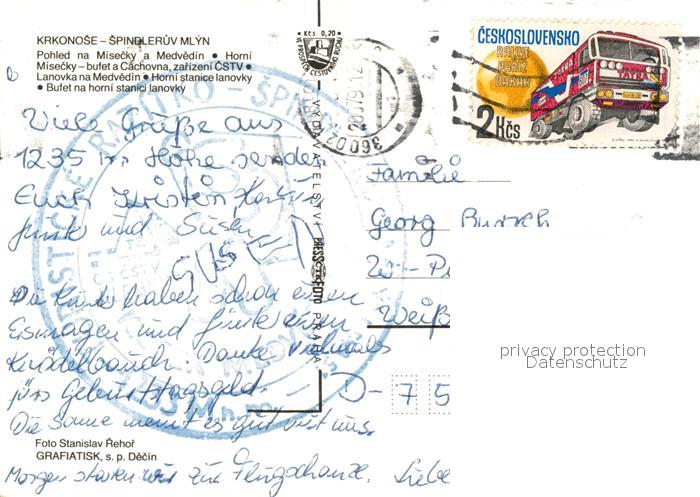 KRKONOŠE – ŠPINDLERŮV MLÝN
Pohled na Mísečky a Medvědín • Horní
Mísečky – bufet a Cáchovna, zařízení ČSTV •
Lanovka na Medvědín • Horní stanice lanovky
• Bufet na horní stanici lanovky
Kčs 0,20
VE PROSPĚCH CESTOVNÍHO RUCHU
ČESKOSLOVENSKO
RALLYE
PAŘÍŽ
DAKAR
TATRA
2 Kčs
Viele Grüße aus
1235 m Höhe senden
Euch Kirsten
und Susen
SUSEN
Die Kinder haben schon einen
Eismagen und einen
Knödelbauch. Danke vielmals
fürs Geburtstagsgeld.
Die Sonne meint es gut mit uns.
Morgen starten wir zur Flugschanze. Liebe
VYDAVATELSTVÍ PRESSFOTO PRAHA
Familie
Georg
W-
Weiß
D-75
privacy protection
Datenschutz
Foto Stanislav Řehoř
GRAFIATISK, s. p. Děčín